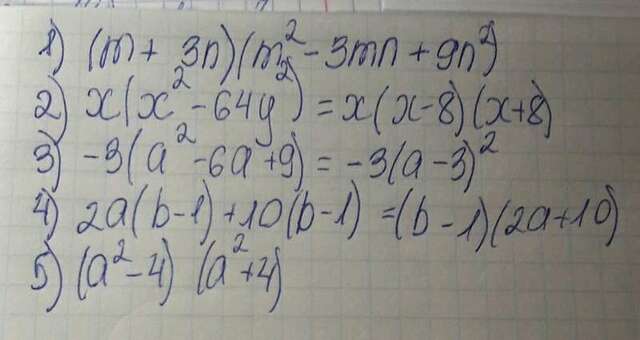 1) (m + 3n)(m² - 3mn + 9n²)
2) x(x² - 64y²) = x(x-8)(x+8)
3) -3(a² - 6a + 9) = -3(a - 3)²
4) 2a(b-1) + 10(b-1) = (b - 1)(2a + 10)
5) (a² - 4) (a² + 4)